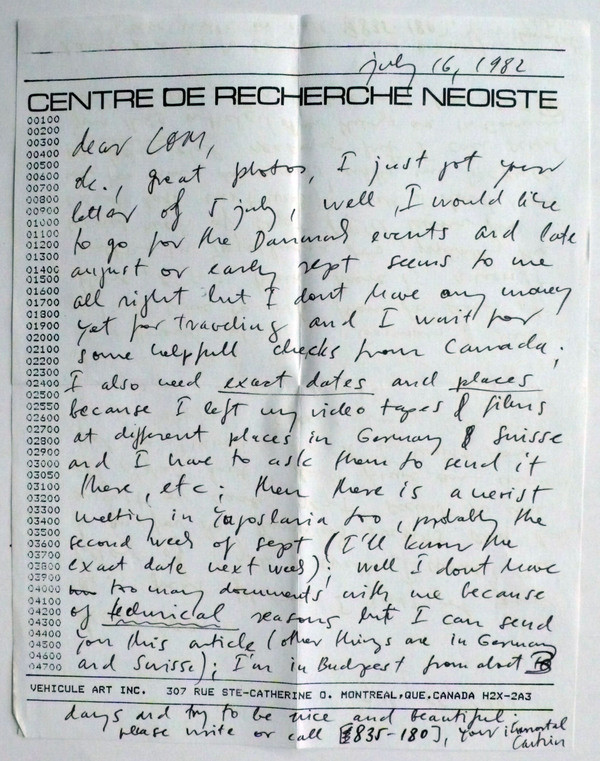 july 16, 1982
CENTRE DE RECHERCHE NEOISTE
00100
00200
00300
00400
00500
00600
00700
00800
00900
01000
01100
01200
01300
01400
01500
01600
01700
01800
01900
02000
02100
02200
02300
02400
02500
02550
02600
02700
02800
02900
03000
03050
03100
03200
03300
03400
03500
03600
03700
03800
03900
04000
04100
04200
04300
04400
04500
04600
04700
dear
ok., great photos, I just got your
letter of 5 july, well, I would like
to go for the events and late
august or early sept seems to me
all right but I dont have any money
yet for traveling and I wait for
some helpfull checks from Canada;
I also need exact dates and places
because I left my video tapes & films
at different places in Germany & Suisse
and I have to ask them to send it
there, etc; then there is a
meeting in Yugoslavia too, probably the
second week of sept (I'll know the
exact date next week); well I dont have
too many documents with me because
of technical reasons but I can send
you this article (other things are in Germany
and Suisse); I'm in Budapest from about
VEHICULE ART INC. 307 RUE STE-CATHERINE O. MONTREAL,QUE.CANADA H2X-2A3
days and try to be nice and beautiful.
please write or call [835-180], your immortal